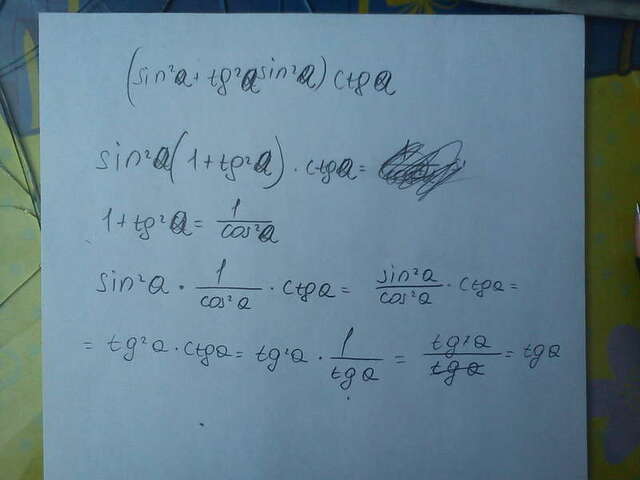 (sin²a + tg²a sin²a) ctga
sin²a(1+tg²a) · ctga =
1+tg²a = 1/cos²a
sin²a · 1/cos²a · ctga = sin²a/cos²a · ctga =
= tg²a · ctga = tg²a · 1/tga = tg²a/tga = tga